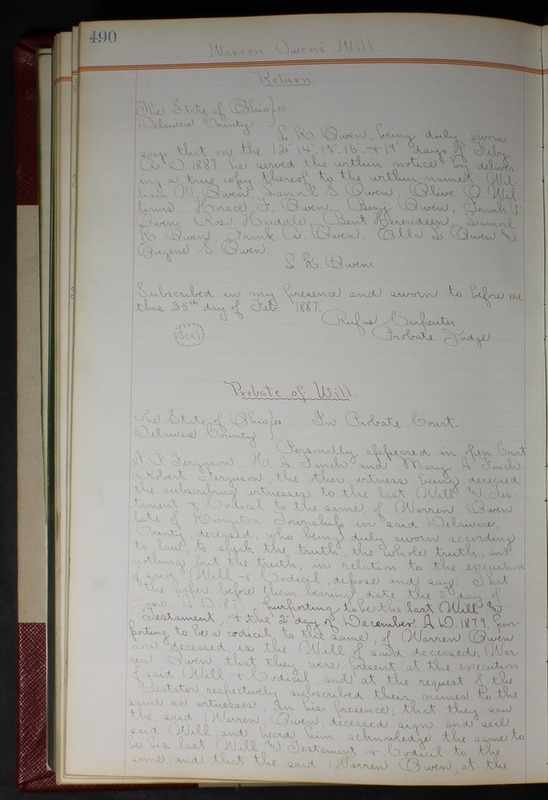 490
Warren Owens Will.
Return.
The State of Ohio } ss
Delaware County
L. K. Owen, being duly sworn
says that on the 13" 14" 15" 16" & 19" days of Feby
A. D. 1887, he served the within notice by deliver-
ing a true copy thereof to the within named, Wil-
liam W. Owen, Samuel S. Owen, Olive O. Wil-
liams, Horace F. Owen, Benj. Owen, Frank V.
Owen, Rosa Huddle, Bent Herendeen, Samuel
K. Owen, Frank W. Owen, Ella L. Owen &
Eugene S. Owen.
L. K. Owen.
Subscribed in my presence and sworn to before me
this 25th day of Feb. 1887.
Rufus Carpenter
Probate Judge
Seal
Probate of Will.
The State of Ohio } ss In Probate Court.
Delaware County
Personally appeared in open Court
A. P. Ferguson, H. A. Finch and Mary A. Finch
Robert Ferguson, the other witness being deceased
the subscribing witnesses to the last Will & Tes-
tament & Codicil to the same, of Warren Owen
late of Kingston Township in said Delaware,
County deceased, who being duly sworn according
to law, to speak the truth, the whole truth, and
nothing but the truth, in relation to the execution
of said Will & Codicil, depose and say: That
the paper before them bearing date the 3" day of
A. D. purporting to be the last Will &
Testament, & the 2" day of December A. D. 1879, pur-
porting to be a codicil to the same, of Warren Owen
now deceased, is the Will of said deceased, War-
ren Owen that they were present at the execution
of said Will & Codicil and at the request of the
testator respectively subscribed their names to the
same as witnesses. In his presence, that they saw
the said Warren Owen, deceased sign and seal
said Will, and heard him acknowledge the same to
be his last Will & Testament & Codicil to the
same, and that the said Warren Owen, at the